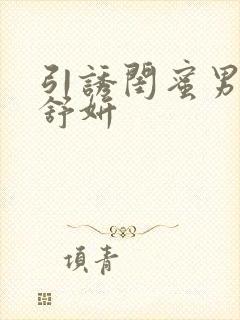 引誘閨蜜男
舒妍
項青